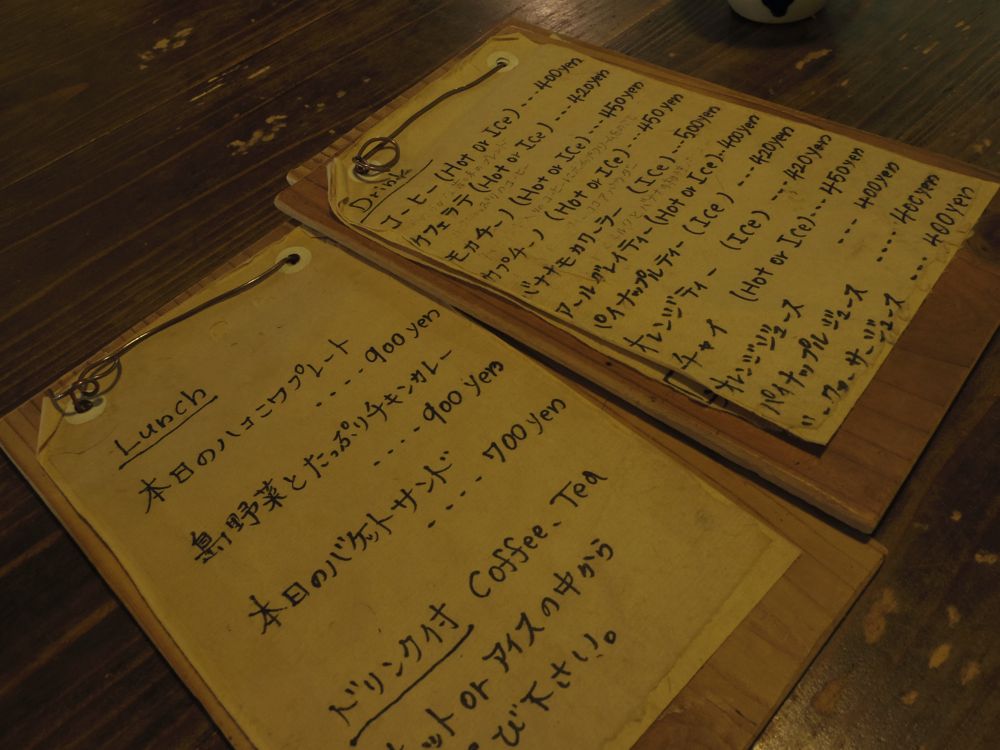 Lunch
本日のハコニワプレート
....900yen
島野菜とたっぷりチキンカレー
....900yen
本日のバケットサンド
....700yen
ドリンク付 Coffee、Tea
ット or アイスの中から
び下さい。
Drink
コーヒー (Hot or Ice) ...400yen
カフェラテ (Hot or Ice) ....420yen
モカチーノ (Hot or Ice)....450yen
カプチーノ (Hot or Ice)...450yen
バナナモカクーラー (Ice)...500yen
アールグレイティー (Hot or Ice)..400yen
パイナップルティー (Ice) ...420yen
オレンジティ (Ice) ....420yen
チャイ (Hot or Ice)...450yen
オレンジジュース ....400yen
パイナップルジュース ....400yen
シークヮーサージュース ....400yen